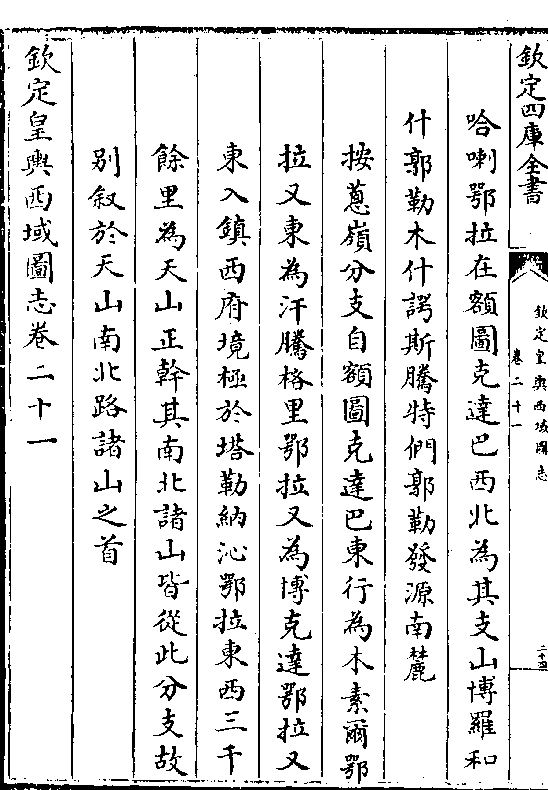 欽定四庫全書
欽定皇輿西域圖志
卷二十一
二十四
哈喇鄂拉在額圖克達巴西北為其支山博羅和
什郭勒木什諤斯騰特們郭勒發源南麓
按蔥嶺分支自額圖克達巴東行為木素爾鄂
拉又東為汗騰格里鄂拉又為博克達鄂拉又
東入鎮西府境極於塔勒納沁鄂拉東西三千
餘里為天山正幹其南北諸山皆從此分支故
別叙於天山南北路諸山之首
欽定皇輿西域圖志卷二十一